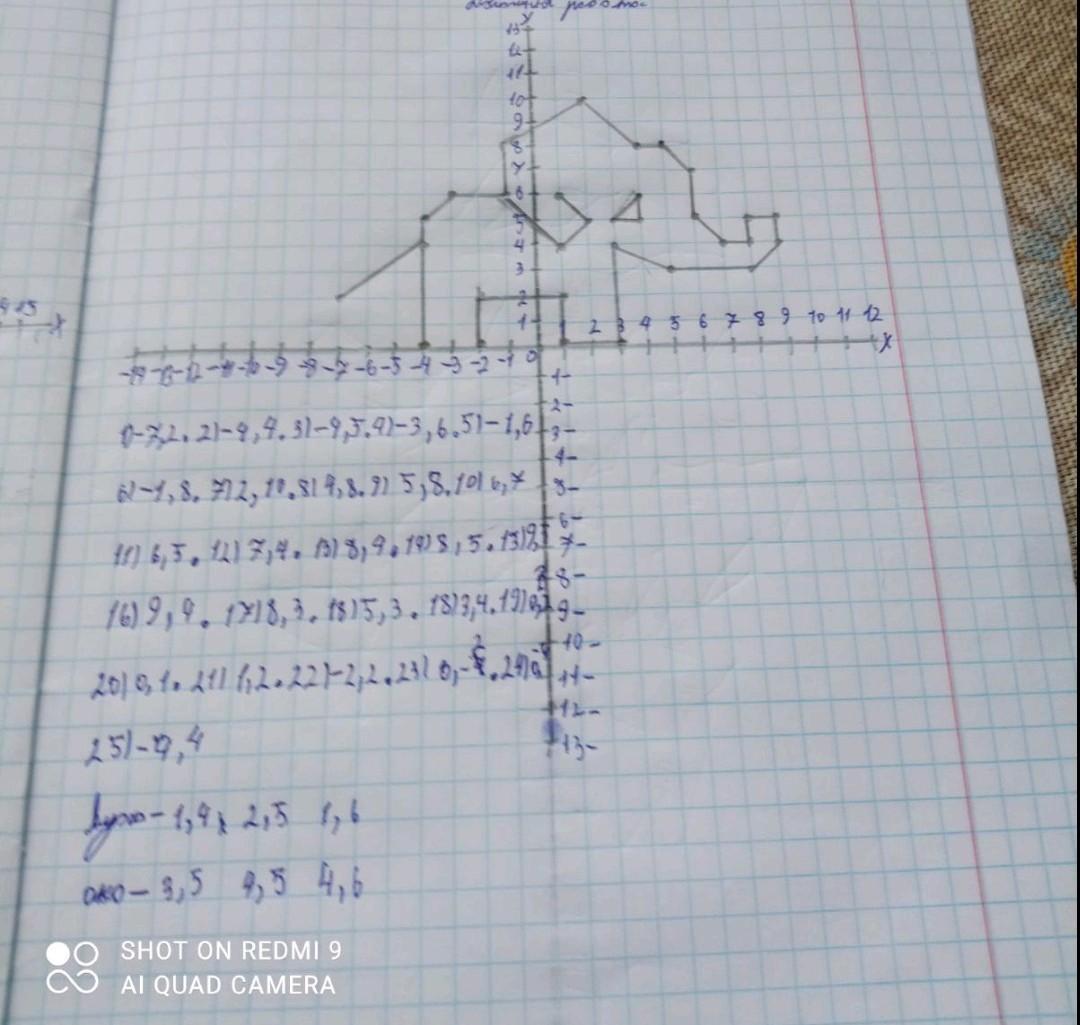 домашня робота
y
13
12
11
10
9
8
7
6
5
4
3
2
1
-14 -13 -12 -11 -10 -9 -8 -7 -6 -5 -4 -3 -2 -1 0 1 2 3 4 5 6 7 8 9 10 11 12 x
1-
2-
3-
4-
5-
6-
7-
8-
9-
10-
11-
12-
13-
1)-7,2. 2)-4,4. 3)-4,5. 4)-3,6. 5)-1,6
6)-1,8. 7)2,10. 8)4,8. 9)5,8. 10)6,7
11)6,5. 12)7,4. 13)8,4. 14)8,5. 15)9,5
16)9,4. 17)8,3. 18)5,3. 18)3,4. 19)0,3
20)0,1. 21)1,2. 22)-2,2. 23)0,-2. 24)0,-4
25)-4,4
Вухо-1,4 2,5 1,6
око-3,5 4,5 4,6
x
SHOT ON REDMI 9
AI QUAD CAMERA